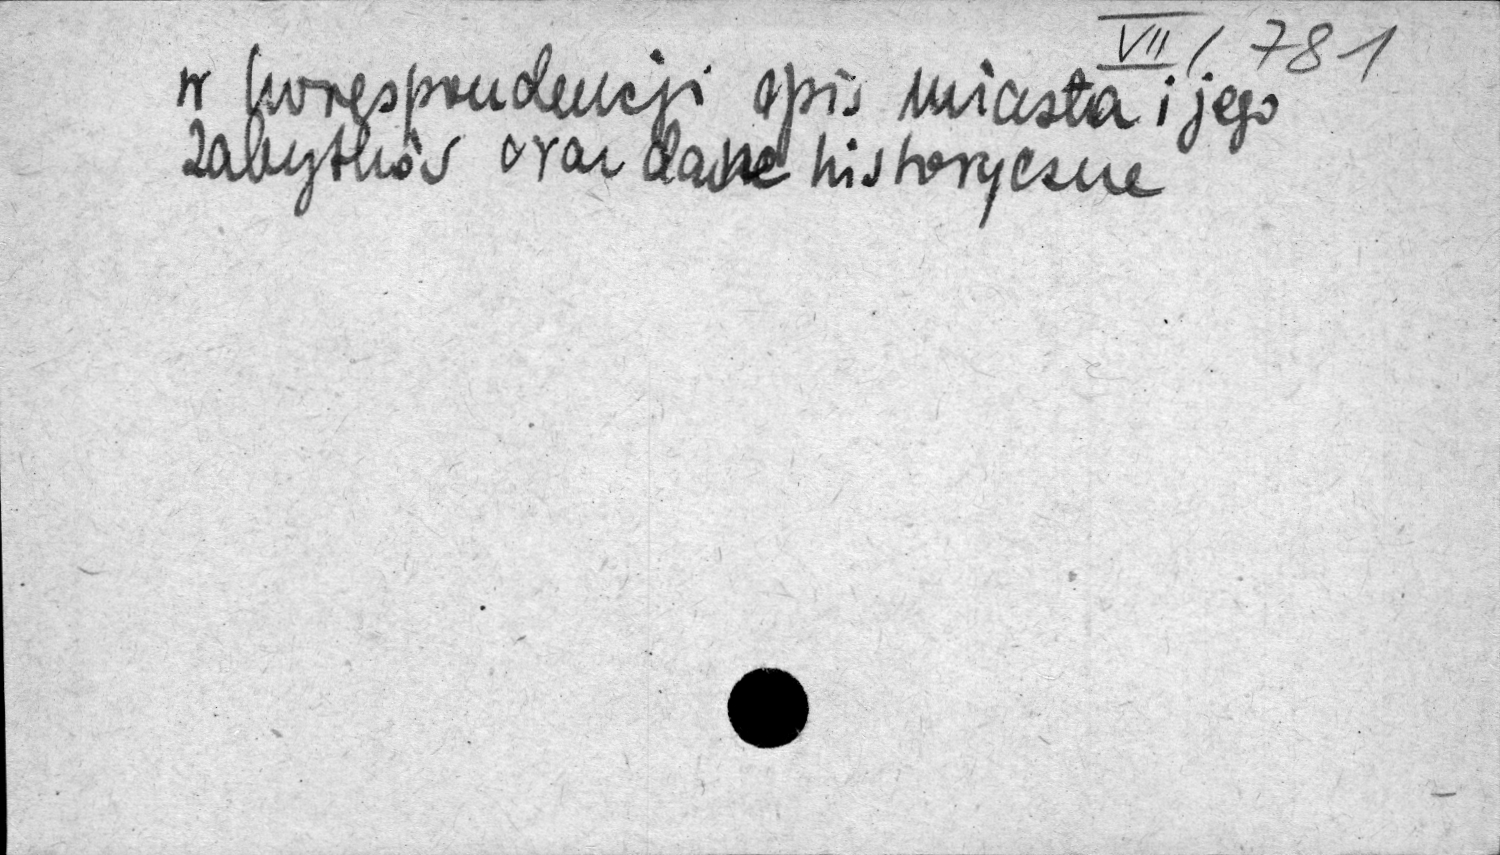 VII / 781
w korespondencji opis miasta i jego
zabytków oraz dane historyczne